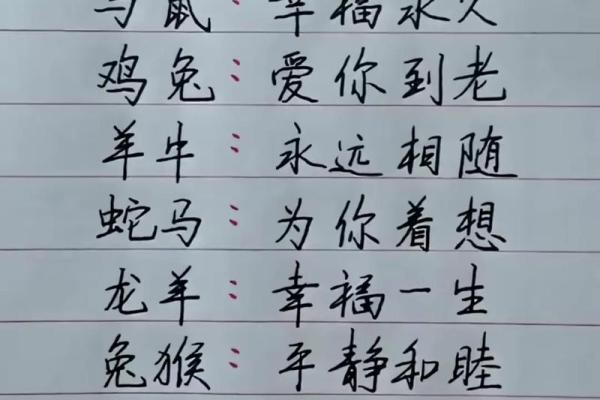 马鼠：幸福永久
鸡兔：爱你到老
羊牛：永远相随
蛇马：为你着想
龙羊：幸福一生
兔猴：平静和睦